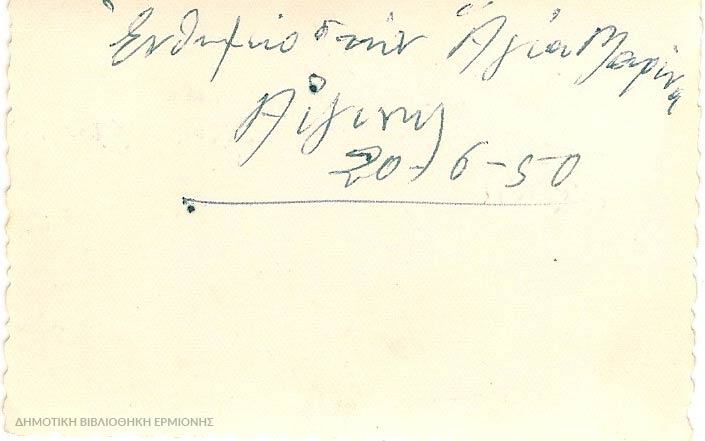 Ἐνθύμιο στὴν Ἁγία Μαρίνα
Αἰγίνης
20-6-50
ΔΗΜΟΤΙΚΗ ΒΙΒΛΙΟΘΗΚΗ ΕΡΜΙΟΝΗΣ